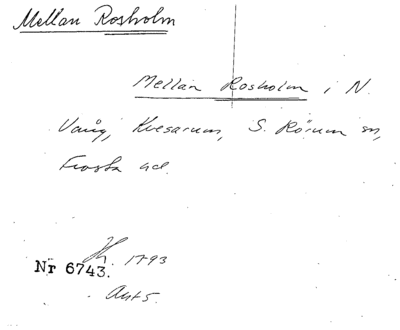 Mellan Rosholm
Mellan Rosholm i N.
Vrång, Kvesarum, S. Rörum sn,
Frosta hd.
Jh. 1793
Nr 6743.
Ant 5.